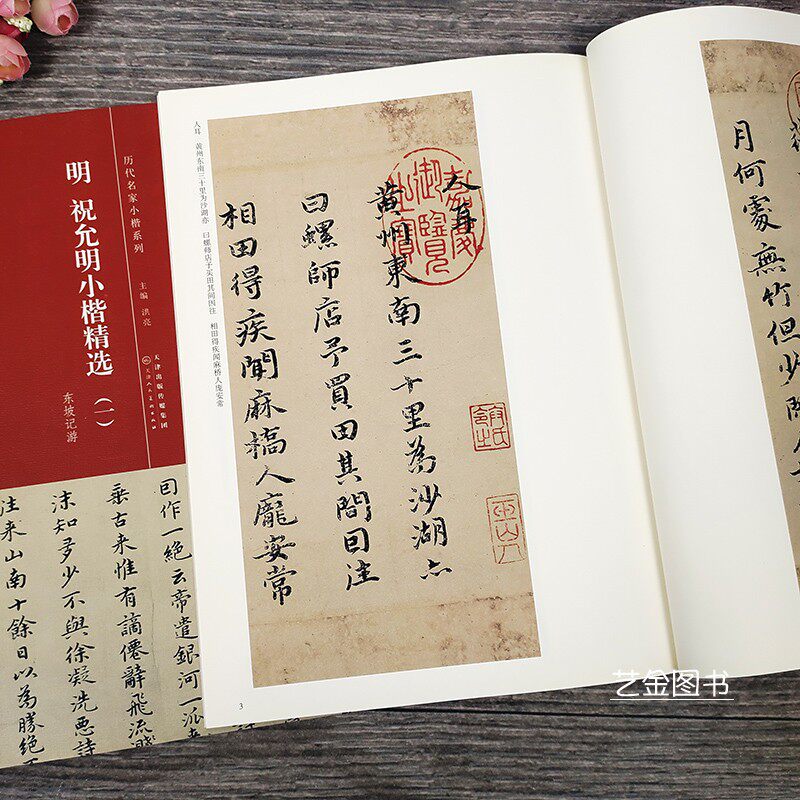 月何處無竹但少閒
人耳
黄州東南三十里為沙湖亦
曰螺師店予買田其間因往
相田得疾聞麻橋人龐安常
人耳 黄州东南三十里为沙湖亦 曰螺师店予买田其间因往 相田得疾闻麻桥人庞安常
3
历代名家小楷系列
主编 洪亮
天津出版传媒集团
天津人民美术出版社
明 祝允明小楷精选（一）
东坡记游
因作一絶云帝遣銀河一派
垂古来惟有謫僊辭飛流濺
沫知多少不與徐凝洗恶詩
往来山南十餘日以為勝絶不
艺金图书